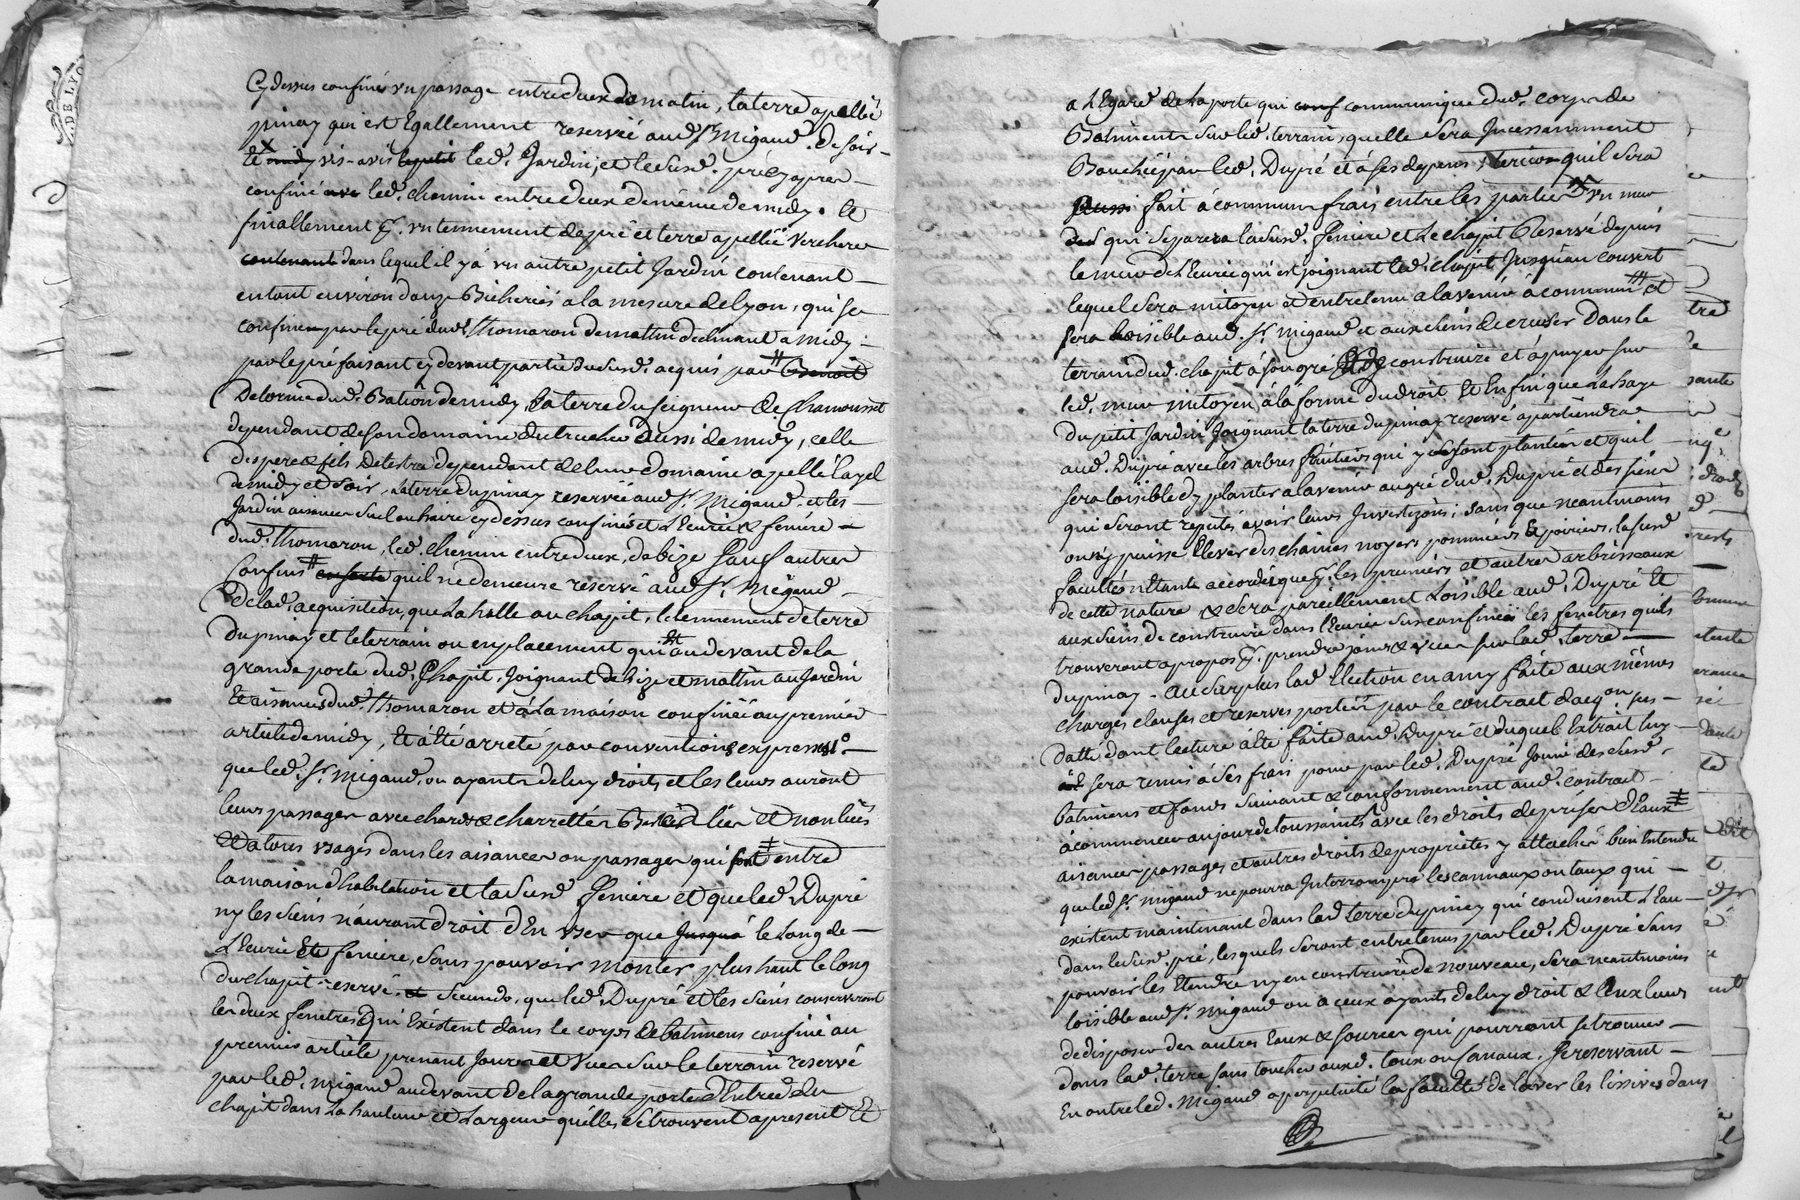 Cy dessus confiné un passage entredeux de matin, la terre apellée
pinay qui est Egallement reservée aud. Sr. Migaud. De soir
le vis-avis led. Jardin, et le susd. pré cy apres
confiné led. chemin entredeux de même de midy. Et
finallement un tennement de pré et terre apellé Verchere
contenant dans lequel il y a un autre petit Jardin contenant
en tout environ douze Bicherées a la mesure de Lyon, qui se
confinen par le pré dud. Thomaron de mattin declinant a midy
par le pré faisant cy devant partie du susd. acquis par Benoit
Delorme dud. Bation de midy, la terre du seigneur de Chamousset
dependant de son domaine aussi de midy, celle
des pere & fils Delestra dependant de leur domaine apellé layel
de midy et soir, la terre du pinay reservée aud. Sr. Migaud. et les
Jardin aisances cy dessus confinés et L'Ecurie & feniere
dud. Thomaron, led. chemin entredeux, de bize sauf autres
Confins en sorte qu'il ne demeure reservé aud. Sr. Migaud
de lad. acquisition, que la halle ou chapit, le tennement de terre
du pinay et le terrain ou emplacement qui au devant de la
grande porte dud. Chapit, Joignant de bize et mattin au Jardin
et aisances dud. Thomaron et à la maison confinée au premier
article de midy, Et a été arreté par conventions expresses 1°.
que led. Sr. Migaud, ou ayants de luy droits et les leurs auront
leurs passages avec chars & charrettes Bestes liés et non liés
et a tous usages dans les aisances ou passages qui sont entre
la maison d'habitation et la susd. feniere et que led. Dupré
ny les siens n'auront droit d'En user que jusqua le Long de
L'Ecurie Et feniere, sans pouvoir monter plus haut le long
du chapit reservé. et Secundo, que led. Dupré et les siens conserveront
les deux fenetres qui Existent dans le corps de batimens confiné au
premier article prenant Jours et Vues sur le terrain reservé
par led. Migaud au devant de la grande porte d'Entrée du
chapit dans la hauteur et Largeur qu'elles se trouvent apresent Et
a L'Egard de la porte qui conf communique dud. corps de
Batiments sur led. terrain, qu'elle sera Incessamment
Bouchée par led. Dupré et à ses depens, tercio qu'il sera
aussi fait à commun frais entre les parties un mur
qui separera la susd. feniere et Le chapit Reservé depuis
le mur de L'Ecurie qui est joignant led. chapit Jusqu'au couvert
lequel sera mitoyen et entretenu a l'avenir à commun et
sera Loisible aud. Sr. Migaud et aux siens de creuser dans le
terrain dud. chapit à son gré construire et apuyer sur
led. mur mitoyen, à la forme du droit Et Enfin que La haye
du petit Jardin Joignant la terre du pinay reservé apartiendra
aud. Dupré avec les arbres fruitiers qui y sont plantés et qu'il
sera loisible d'y planter a l'avenir au gré dud. Dupré et des siens
qui seront reputés avoir leurs Investizons; sans que neantmoins
on y puisse Elever des chaines noyers pommiers & poiriers, la susd.
faculté n'étant accordée que pr. les pruniers et autres arbrisseaux
de cette nature & sera pareillement Loisible aud. Dupré Et
aux siens de construire dans l'Ecurie sus confinée les fenetres qu'ils
trouveront apropos pr. prendre jours & vues sur lad. terre
du pinay. au surplus lad. Election en amy faite aux mêmes
charges clauses et reserves portées par le contrat d'acqon. sus
datté dont lecture a été faite aud. Dupré et duquel Extrait luy
sera remis à ses frais pour par led. Dupré Jouir des susd.
batimens et fonds suivant & conformement aud. contrat
à commencer au jour de toussaints avec les droits de prises d'Eaux
aisances passages et autres droits de proprietés y attachés bien Entendu
que led. Sr. Migaud ne pourra Interrompre les cannaux ou taux qui
existent maintenant dans lad. terre du pinay qui conduisent L'Eau
dans le susd. pré, lesquels seront entretenus par led. Dupré sans
pouvoir les Etendre ny en construire de nouveaux, sera neantmoins
loisible aud. Sr. Migaud ou a ceux ayants de luy droit & Eux leurs
de disposer des autres Eaux & sources qui pourront se trouver
dans lad. terre sans toucher auxd. taux ou canaux. Se reservant
En outre led. Migaud a perpetuité la faculté de laver les lissives dans